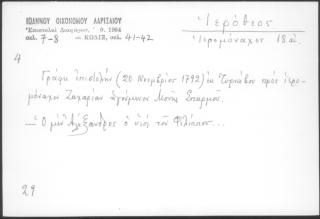 ΙΩΑΝΝΟΥ ΟΙΚΟΝΟΜΟΥ ΛΑΡΙΣΑΙΟΥ
Ἐπιστολαὶ Διαφόρων, 1964
σελ. 7-8 — ΚΩΔΙΞ, σελ. 41-42
Ἱερόθεος
Ἱερομόναχος 18 αἰ.
4
Γράφει ἐπιστολὴν (20 Νοεμβρίου 1792) ἐκ Τυρνάβου πρὸς ἱερο-
μόναχον Ζαχαρίαν ἡγούμενον Μονῆς Σπαρμοῦ.
— Ὁ μὲν Ἀλέξανδρος ὁ υἱὸς τοῦ Φιλίππου...
29